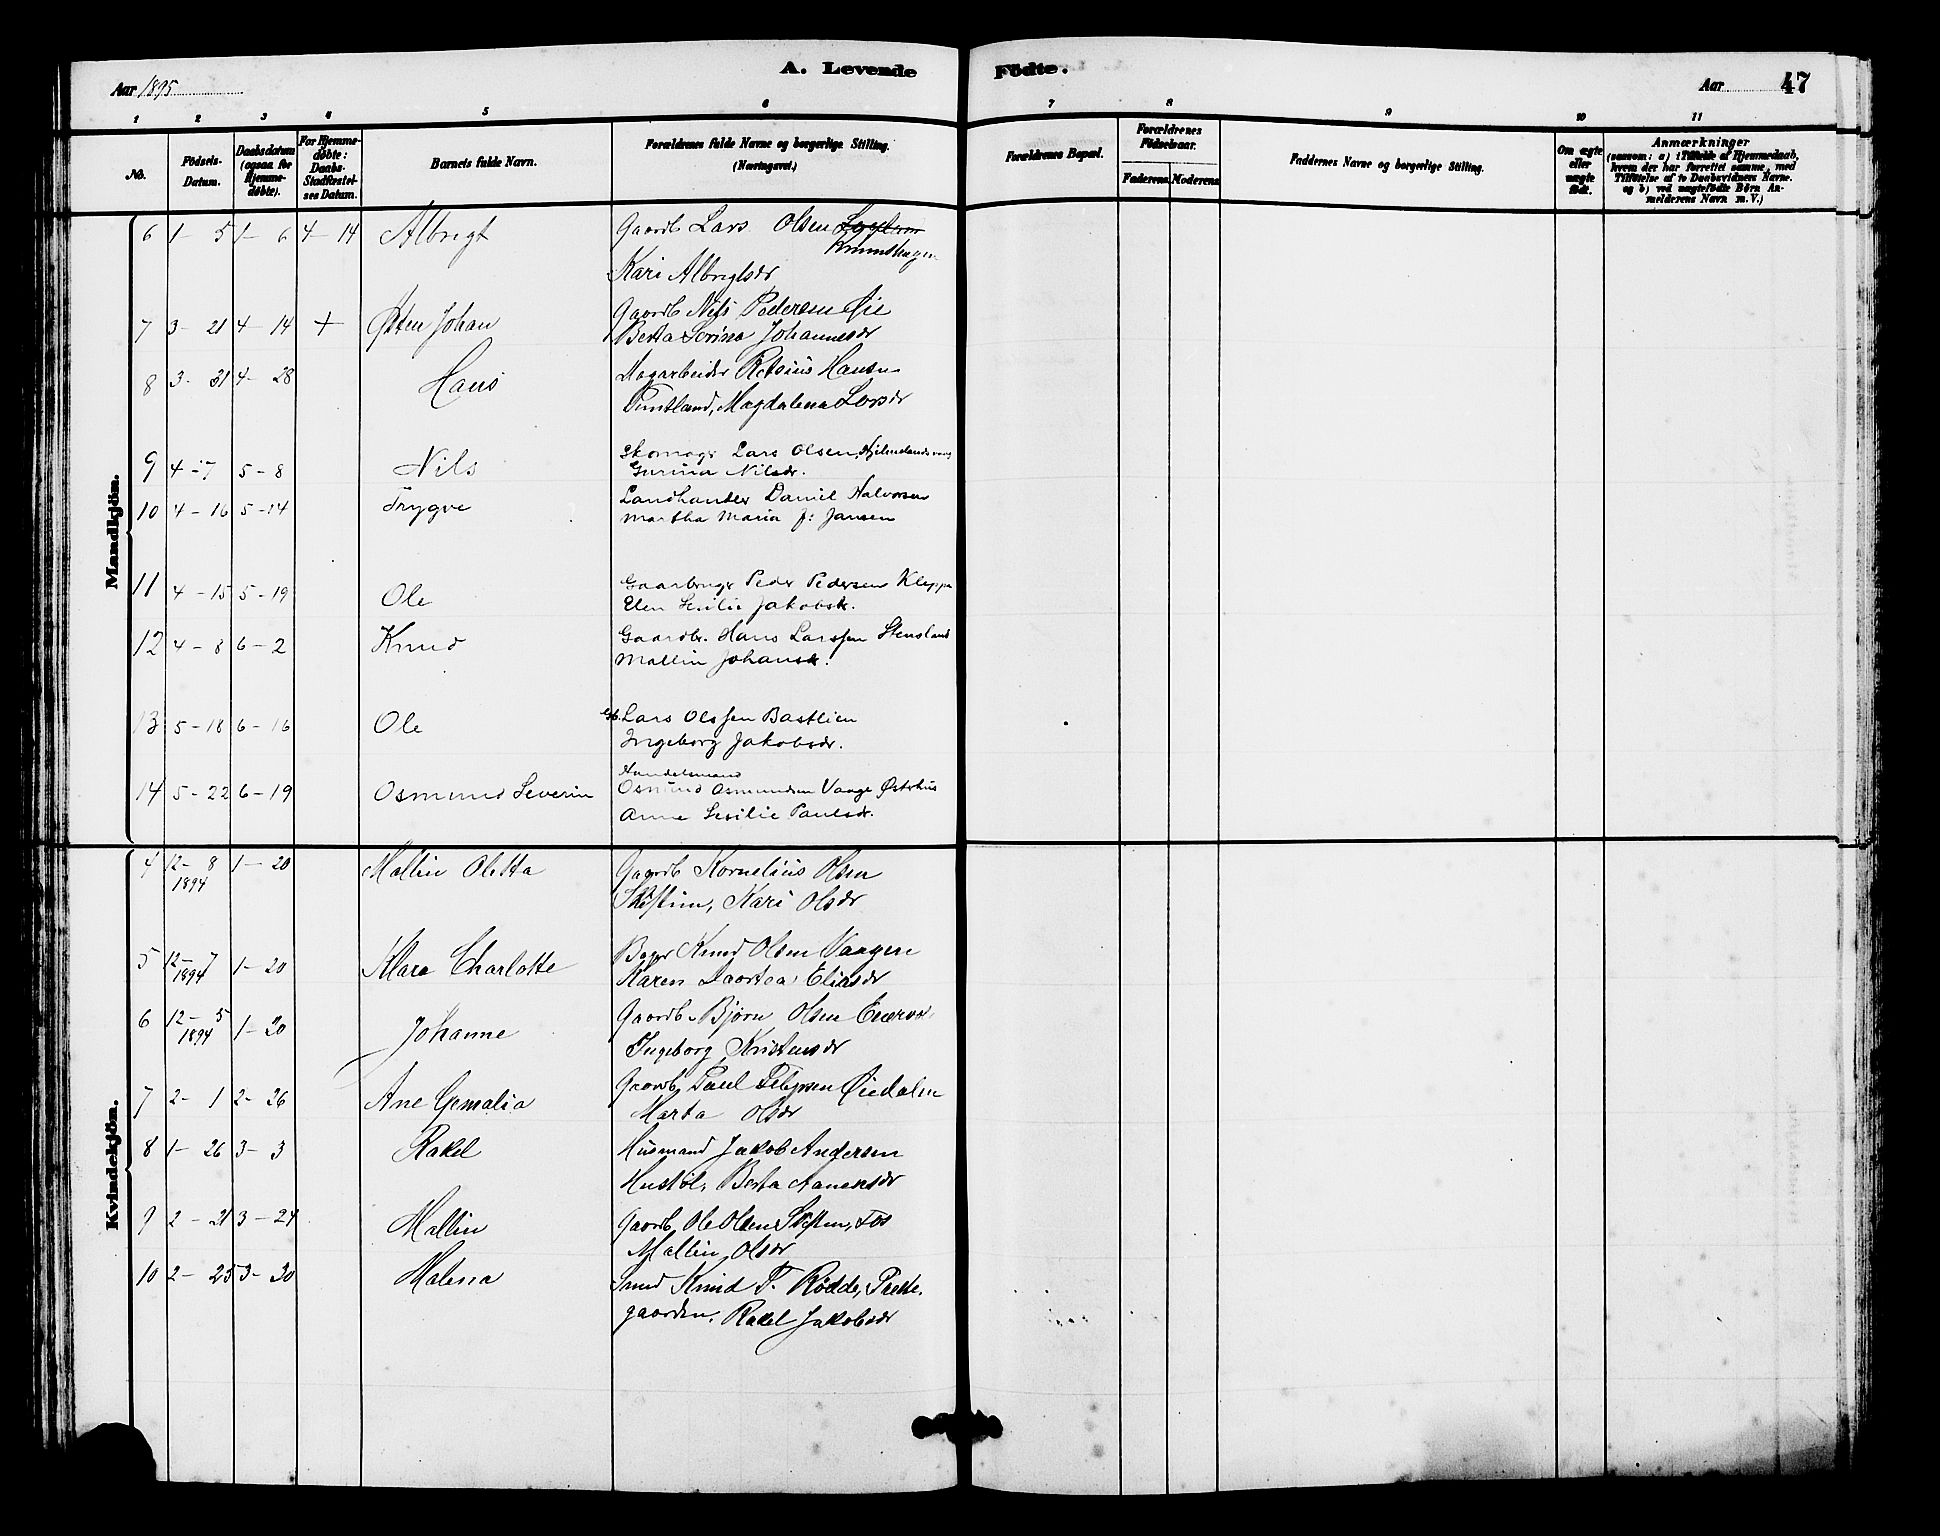 A. Levende Födte.
Aar 1895
Aar 47
1 2 3 4 5 6 7 8 9 10 11
No.
Födsels-Datum.
Daabsdatum (ogsaa for Hjemme-døbte).
For Hjemme-døbte: Daabs-Stadfæstel-ses Datum.
Barnets fulde Navn.
Forældrenes fulde Navne og borgerlige Stilling. (Næringsvei.)
Forældrenes Bopæl.
Forældrenes Födselsaar.
Faderens. Moderens
Faddernes Navne og borgerlige Stilling.
Om ægte eller uægte født.
Anmærkninger
(saasom: a) i Tilfælde af Hjemmedaab, hvem der har forrettet samme, med Tilføielse af to Daabsvidners Navne. og b) ved uægtefødte Børn An-melderens Navn m. V.)
Mandkjön.
6 1- 5 1- 6 4- 14 Albregt Gaardb Lars Olsen
Kari Albregtsdr
7 3- 21 4- 14 + Østen Johan Gaardb Nils Pedersen Øie
Berta Serina Johannesdr
8 3- 31 4- 28 Hans Hansen
Magdalena Larsdr
9 4-7 5-8 Nils Skomagr Lars Olsen
Gurina Nilsdr.
10 4-16 5-14 Trygve Landhandler Daniel Halvorsen
Martha Maria J: Jansen
11 4-15 5-19 Ole Gaarbrugr Peder Pedersen Kleppe
Elen Sesilie Jakobsdr.
12 4-8 6-2 Knud Gaardbr. Hans Larssen Stensland
Mallin Johansdr.
13 5-18 6-16 Ole Gb. Lars Olssen Bastlien
Ingeborg Jakobsdr.
Handelsmand
14 5-22 6-19 Osmund Severin Osmund Osmundsen Vaage Østrhus
Anne Sesilie Paulsdr.
Kvindekjön.
4 12- 8 1894 1- 20 Mallin Oletta Gaardb Kornelius Olsen
Kari Olsdr
5 12- 7 1894 1- 20 Klara Charlotte Knud Olsen Vaagen
Karen Daortea Eliasdr
6 12- 5 1894 1- 20 Johanne Gaardb. Bjørn Olsen
Ingeborg Kristensdr
7 2- 1 2- 26 Ane Gaardb, Paul Øiedalen
Marta Olsdr
8 1- 26 3- 3 Rakel Husmand Jakob Andersen
Berta
9 2- 21 3- 24 Mallin Gaardb, Ole Olsen
Mallin Olsdr
10 2- 25 3- 30 Malena Smed Knud T. Rødde, Preste-
gaarden, Rakel Jakobsdr